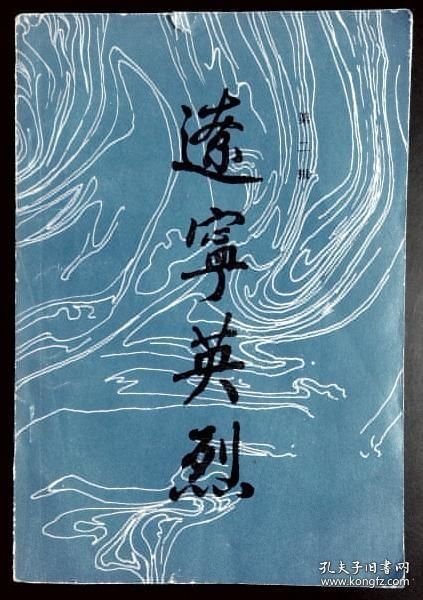 第二辑
遼寧英烈
孔夫子旧书网
www.kongfz.com